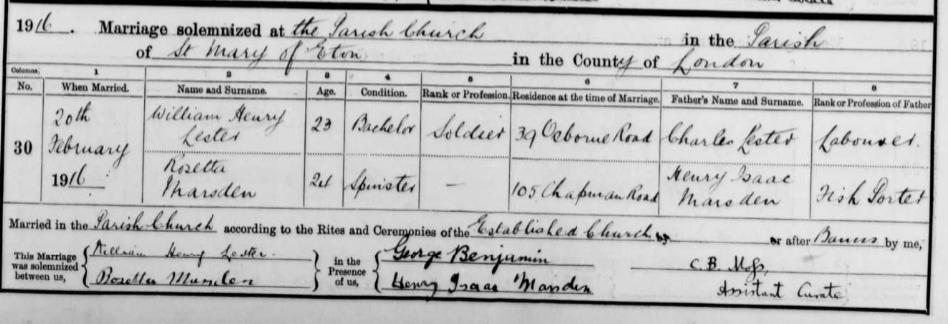 1916. Marriage solemnized at the Parish Church in the Parish
of St Mary of Eton in the County of London
Columns. 1 2 3 4 5 6 7 8
No. When Married. Name and Surname. Age. Condition. Rank or Profession. Residence at the time of Marriage. Father's Name and Surname. Rank or Profession of Father
30 20th February 1916 William Henry Lester 23 Bachelor Soldier 39 Osborne Road Charles Lester Labourer.
Rosetta Marsden 21 Spinster — 105 Chapman Road Henry Isaac Marsden Fish Porter
Married in the Parish Church according to the Rites and Ceremonies of the Established Church by or after Banns by me,
This Marriage was solemnized between us, William Henry Lester. in the Presence of us, George Benjamin C. B.
Rosetta Marsden Henry Isaac Marsden Assistant Curate